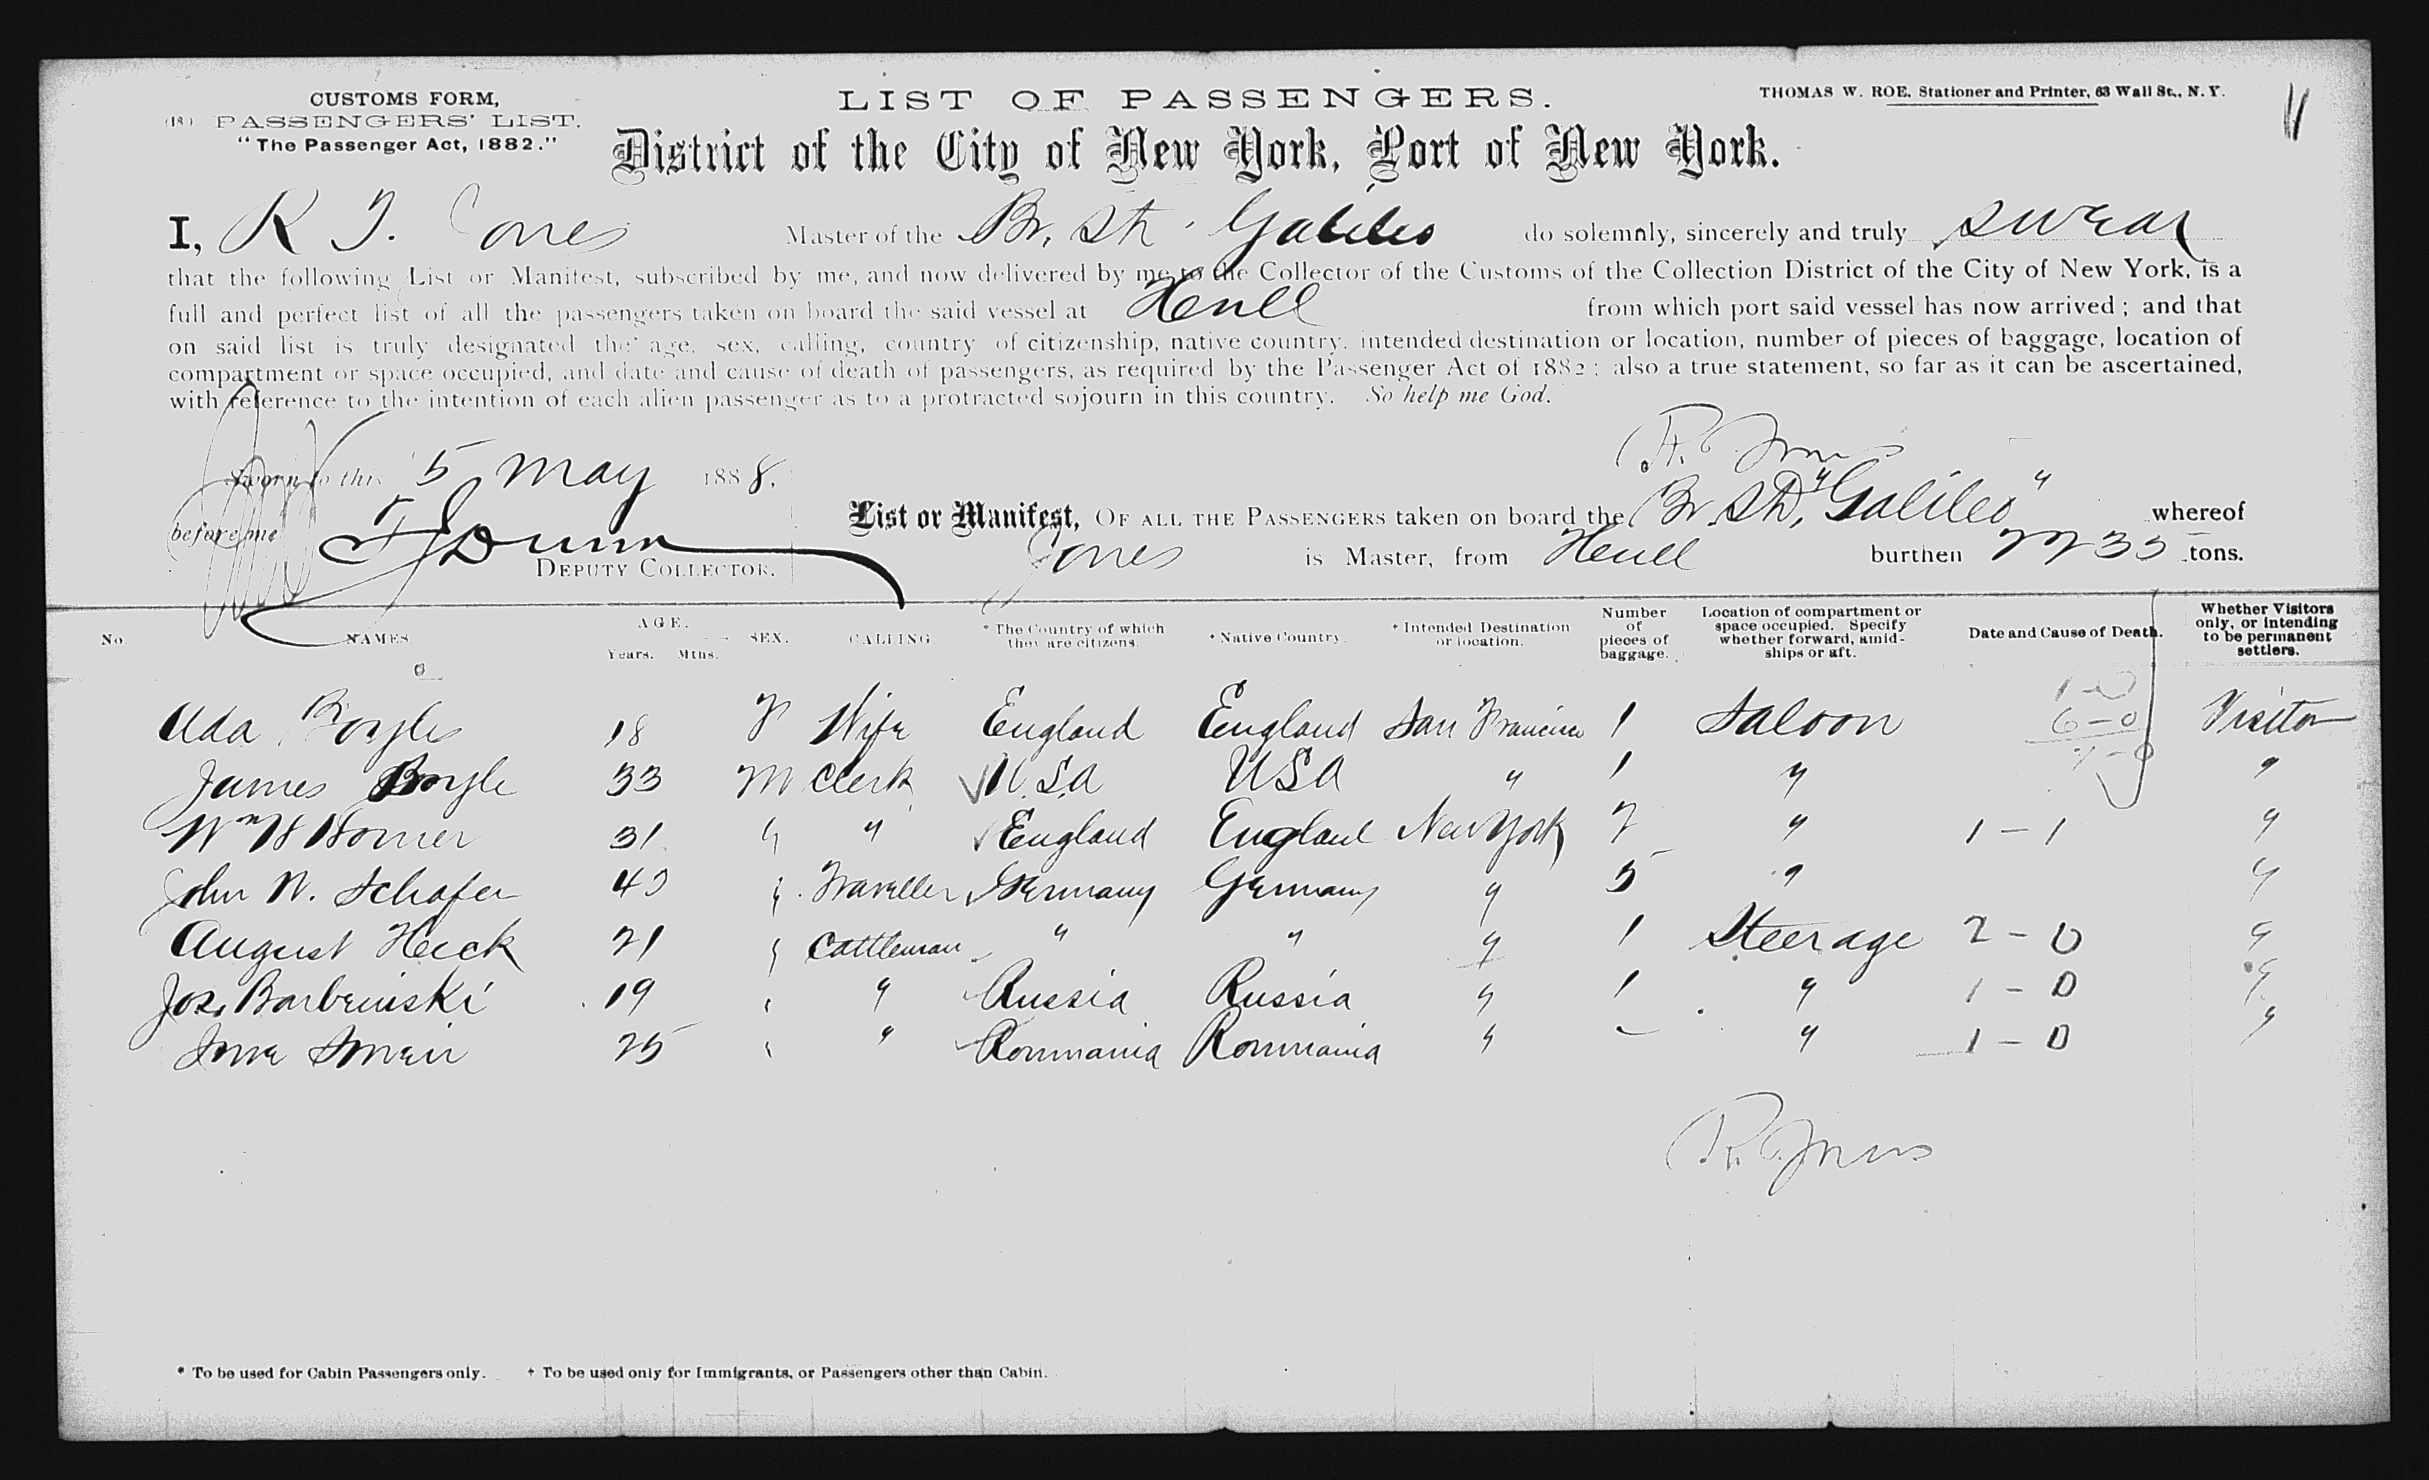 CUSTOMS FORM,
(18) PASSENGERS' LIST.
"The Passenger Act, 1882."
LIST OF PASSENGERS.
THOMAS W. ROE, Stationer and Printer, 63 Wall St., N.Y.
District of the City of New York, Port of New York.
I, R T. Jones Master of the Br. Str Galileo do solemnly, sincerely and truly swear
that the following List or Manifest, subscribed by me, and now delivered by me to the Collector of the Customs of the Collection District of the City of New York, is a
full and perfect list of all the passengers taken on board the said vessel at Hull from which port said vessel has now arrived; and that
on said list is truly designated the age, sex, calling, country of citizenship, native country, intended destination or location, number of pieces of baggage, location of
compartment or space occupied, and date and cause of death of passengers, as required by the Passenger Act of 1882; also a true statement, so far as it can be ascertained,
with reference to the intention of each alien passenger as to a protracted sojourn in this country. So help me God.
Sworn to this 5 May 1888.
before me Dunn
DEPUTY COLLECTOR.
List or Manifest, OF ALL THE PASSENGERS taken on board the Br. Str, "Galileo" whereof
Jones is Master, from Hull burthen 2235 tons.
No. NAMES AGE. Years. Mths. SEX. CALLING * The Country of which they are citizens. + Native Country. + Intended Destination or location. Number of pieces of baggage. Location of compartment or space occupied. Specify whether forward, amidships or aft. Date and Cause of Death. Whether Visitors only, or intending to be permanent settlers.
Ada Boyle 18 F Wife England England San Francisco 1 Saloon 1-0 6-0 7-0 Visitor
James Boyle 33 M Clerk U.S.A USA " 1 " "
Wm H Horner 31 " " England England New York 2 " 1-1 "
John W. Schafer " Traveller Germany Germany " 5 " "
August Heck 21 " Cattleman " " " 1 Steerage 2-0 "
Jos. 19 " " Russia Russia " 1 " 1-0 "
25 " " Roumania Roumania " - " 1-0 "
R. Jones
* To be used for Cabin Passengers only. + To be used only for Immigrants, or Passengers other than Cabin.